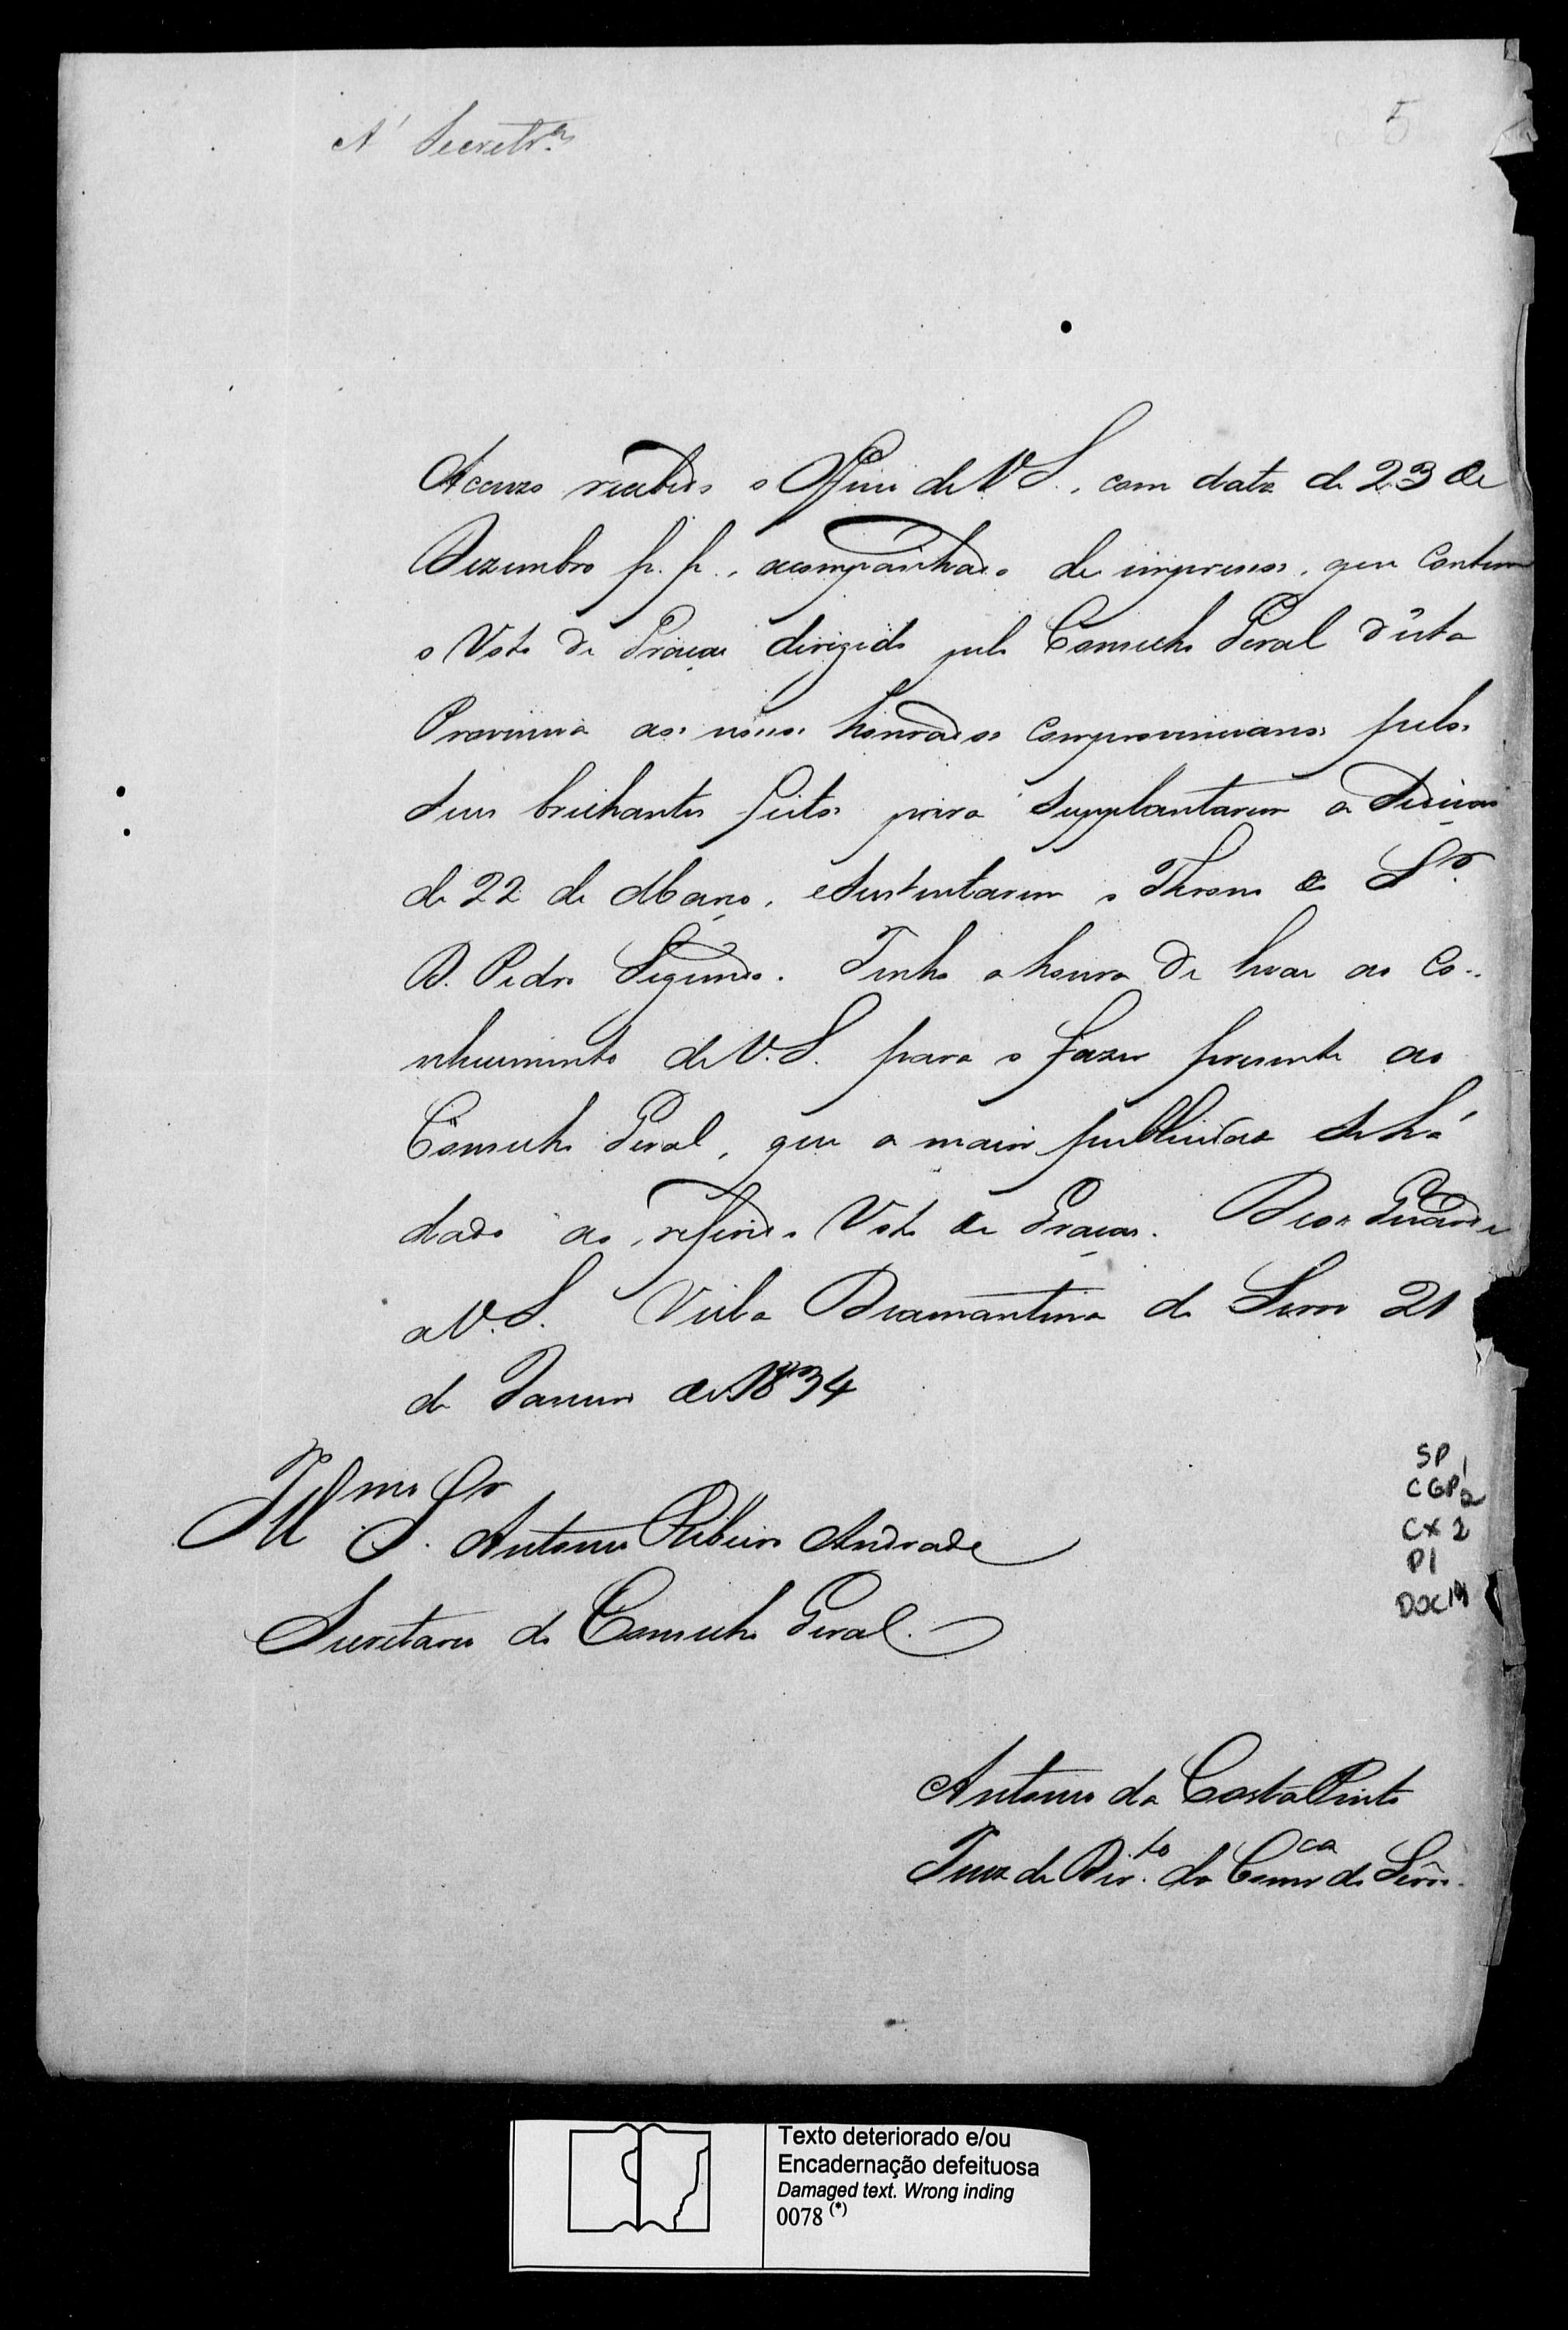 A' Secretr.ª
5
Accuzo recebido o Officio de V. S., com data de 23 de
Dezembro p. p., acompanhado de impressos, que contem
o Voto de Graças dirigido pelo Conselho Geral d'esta
Provincia aos nossos honrados comprovincianos pelos
seus brilhantes feitos para supplantarem a Sedição
de 22 de Março, e sustentarem o Throno do Sr.
D. Pedro Segundo. Tenho a honra de levar ao Co-
nhecimento de V. S. para o fazer presente ao
Conselho Geral, que a maior publicidade se há
dado ao referido Voto de Graças. Deos Guarde
a V. S. Villa Diamantina do Serro 21
de Janeiro de 1834
Illmo Sr
S. Antonio Ribeiro Andrade
Secretario do Conselho Geral.
SP
CGP 1 2
CX 2
P1
DOC 19
Antonio da Costa Pinto
Juiz de Dir.to da Comca do Serro.
Texto deteriorado e/ou
Encadernação defeituosa
Damaged text. Wrong inding
0078 (*)